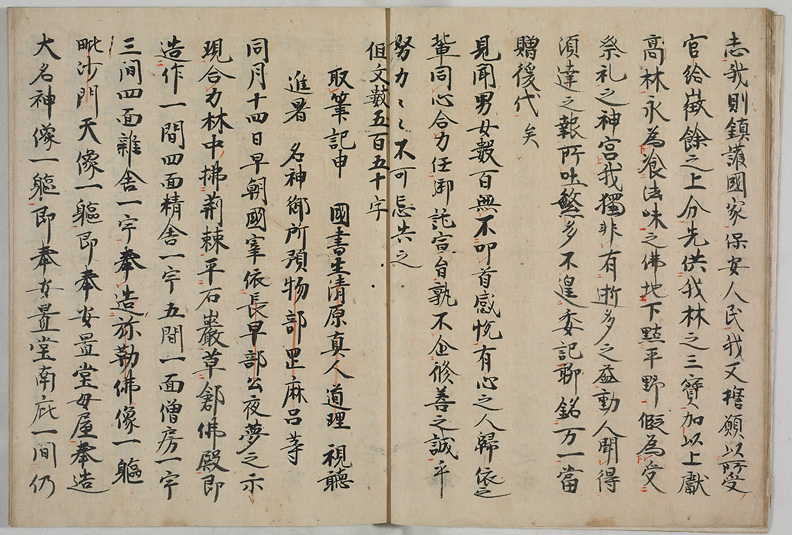 志我則鎮護國家保安人民我又擔願以所受
官給徵餘之上分先供我林之三寳加以上獻
高林永為飡法味之佛地下點平野假為受
祭礼之神宮我獨非有逝多之益動人聞得
須達之報所吐繁多不遑委記聊銘万一當
贈後代矣
見聞男女數百無不叩首感悦有心之人歸依之
輩同心合力任御託宣自孰不企脩善之誠乎
努力〻〻不可忘失之
但文數五百五十字
取筆記申 國書生清原真人道理 視聽
進署 名神御所預物部里麻呂等
同月十四日早朝國宰依長早部公夜夢之示
現合力林中拂荊棘平石巖草創佛殿即
造作一間四面精舎一宇五間一面僧房一宇
三间四面雜舎一宇奉造弥勒佛像一軀
毗沙門天像一軀即奉安置堂母屋奉造
大名神像一軀即奉安置堂南庇一間仍